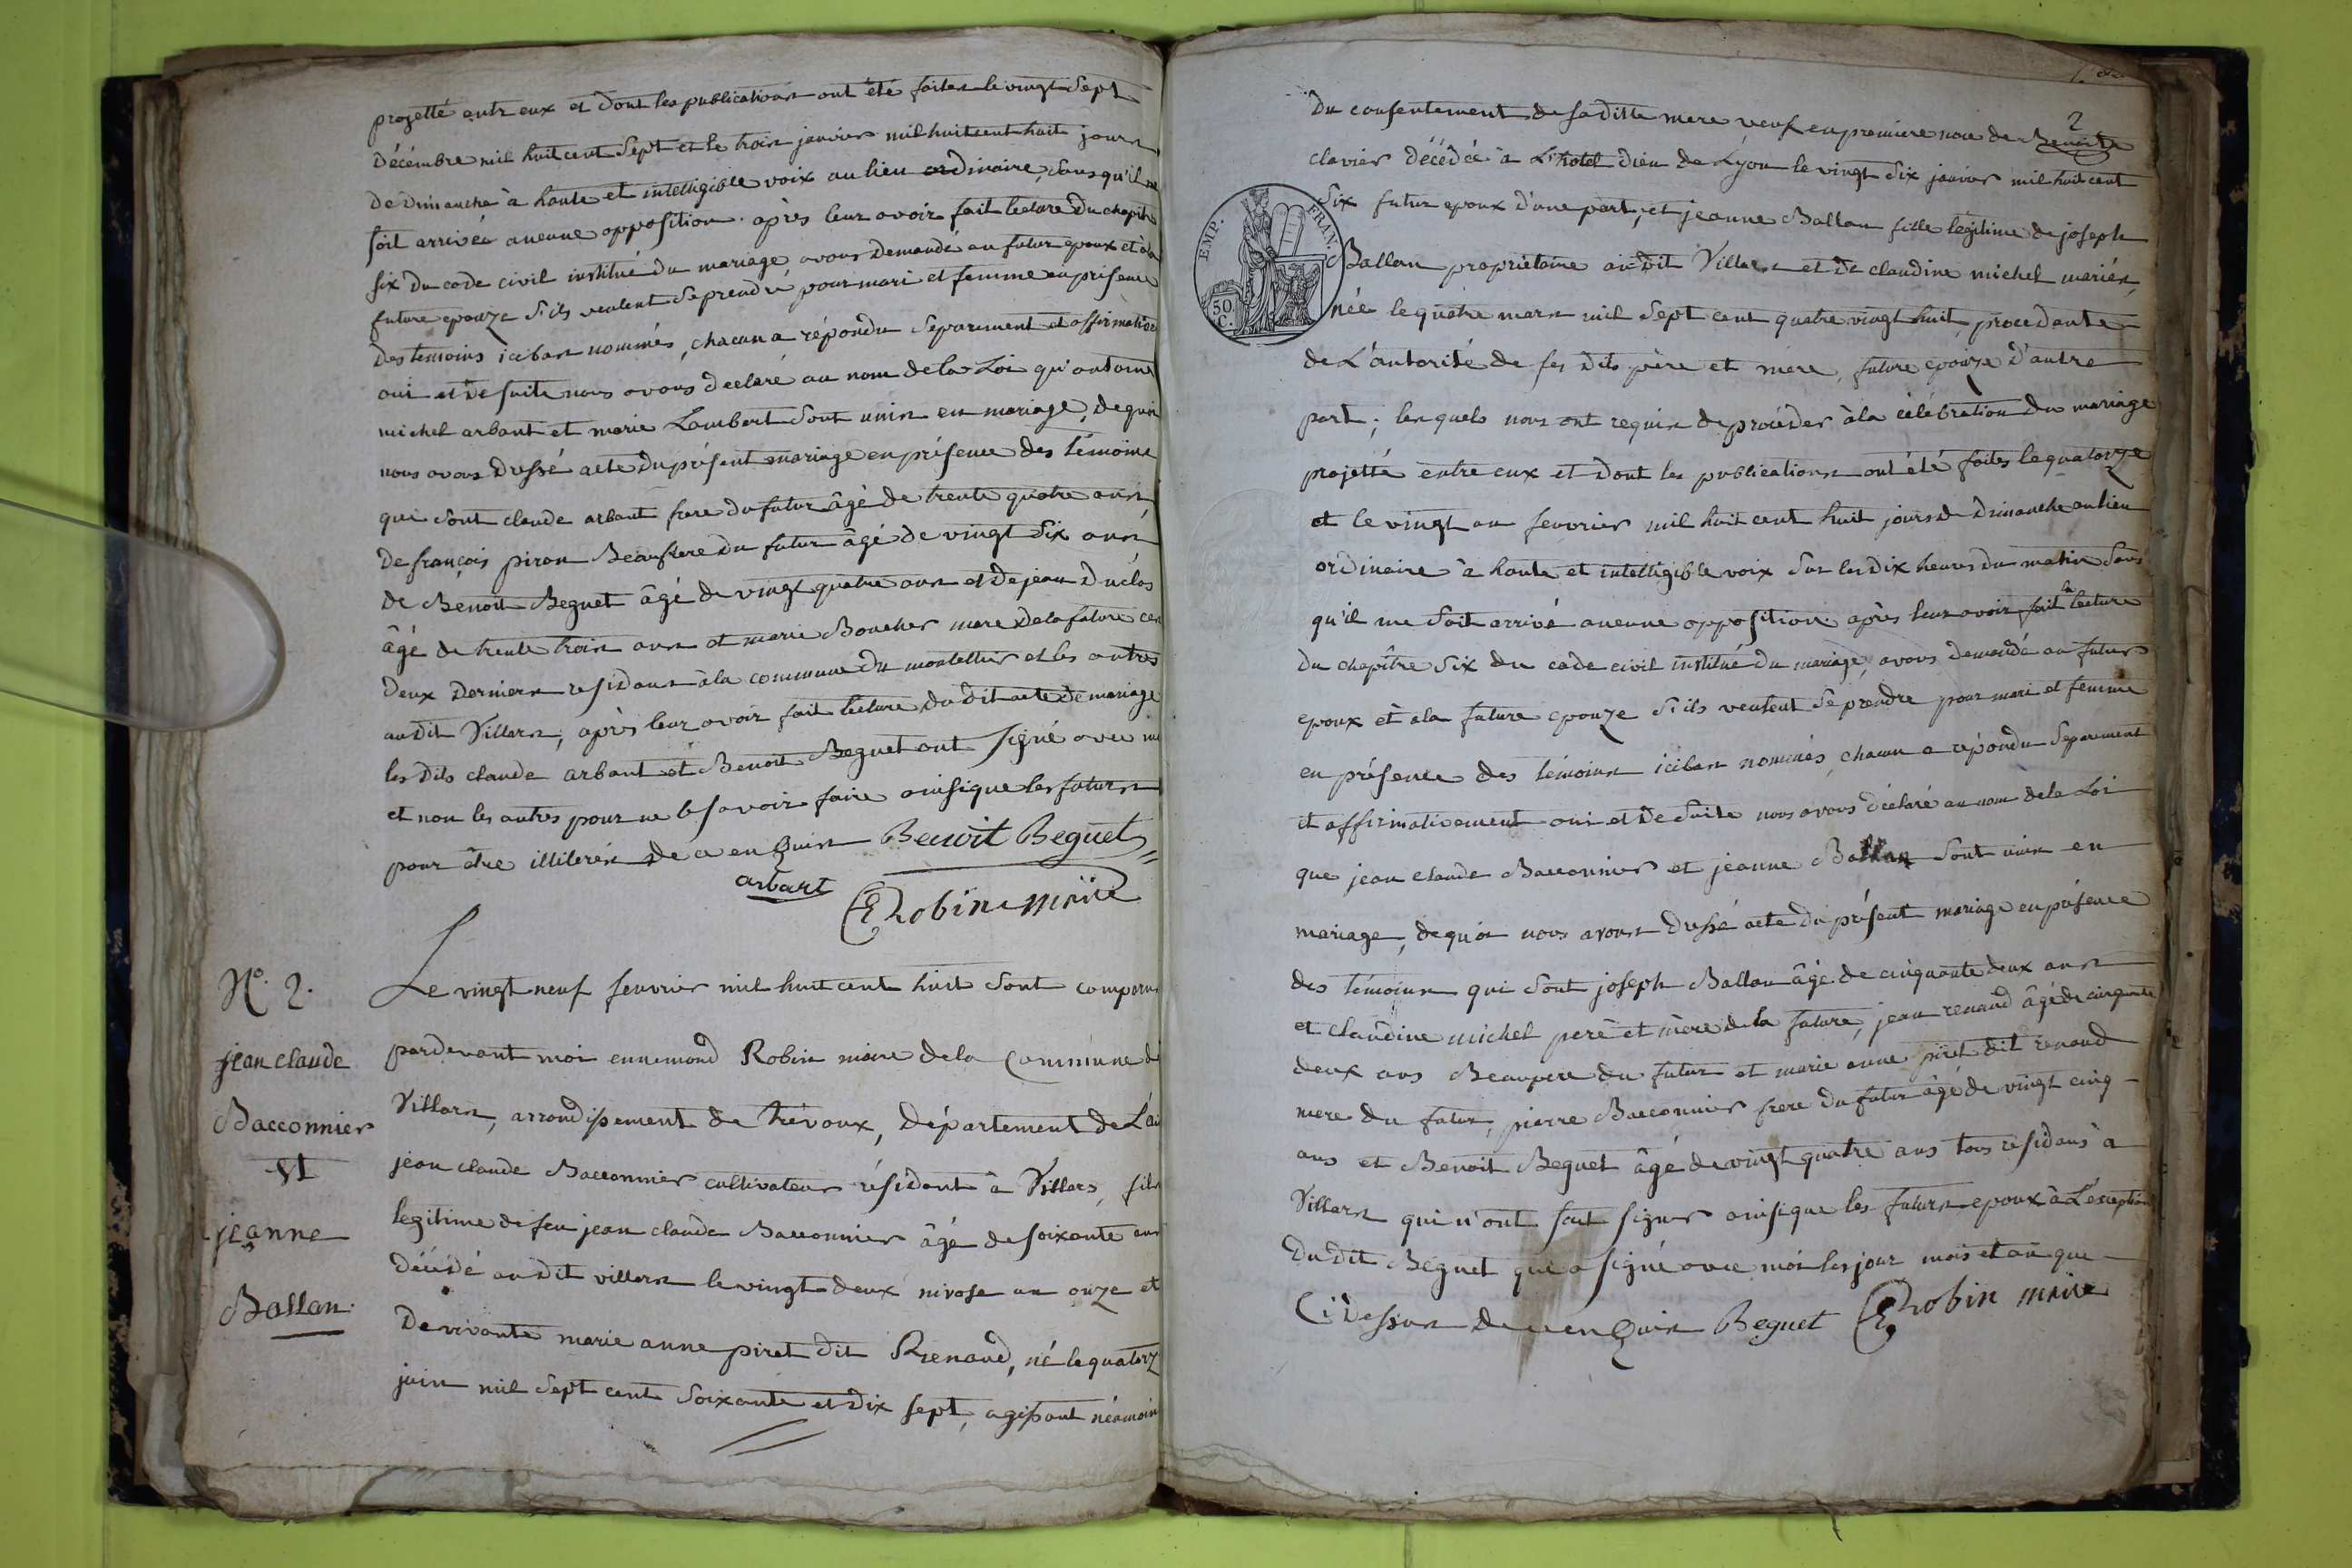 projetté entr eux et dont les publications ont été faites le vingt Sept
Décémbre mil huit cent Sept et le trois janvier mil huit cent huit jours
de Dimanche à haute et intelligible voix au lieu ordinaire, sans qu'il ne
soit arrivée aucune opposition. après leur avoir fait lecture du chapitre
six du code civil institué du mariage, avons demandé au futur epoux et à la
future epouze S'ils veulent Se prendre pour mari et femme en présence
des temoins icibas nommés, chacun a répondu Séparément et affirmative
oui et De suite nous avons declaré au nom de la Loi qu'antoine
michel arbant et marie Lambert Sont unis en mariage, de quoi
nous avons Dressé acte du présent mariage en présence des témoins
qui Sont claude arbant frere du futur âgé de trente quatre ans,
De françois piron Beaufrere du futur âgé de vingt Six ans
de Benoit Beguet âgé de vingt quatre ans et De jean Duclos
âgé de trente trois ans et marie Boucher mere de la future ces
Deux Derniers residans à la commune du montellier et les autres
audit Villars, après leur avoir fait lecture du dit acte de mariage
les dits claude arbant et Benoit Beguet ont Signé avec moi
et non les autres pour ne le Savoir faire ainsi que les futurs
pour être illiterés de ce enquis Benoit Beguet
arbant
E Robin maire
N.° 2.
jean claude
Bacconnier
et
jeanne
Ballan.
Le vingt neuf fevrier mil huit cent huit Sont comparus
pardevant moi ennemond Robin maire de la Commune de
Villars, arrondissement de Trévoux, Département de L'ain
jean claude Bacconnier cultivateur résidant à Villars, fils
legitime de feu jean claude Bacconnier âgé de soixante ans
Décédé audit villars le vingt deux nivose an onze et
De vivante marie anne piret dit Renaud, né le quatorze
juin mil Sept cent Soixante et Dix sept, agissant néamoins
2
du consentement de sa ditte mere veuf en premiere noce de Benoite
clavier décédée à L'hotel Dieu de Lyon le vingt Six janvier mil huit cent
Six futur epoux d'une part, et jeanne Ballan fille légitime de joseph
EMP. FRAN.
50 C.
Ballan propriétaire audit Villars et de claudine michel mariés,
née le quatre mars mil Sept cent quatre vingt huit, procedante
de L'autorité de ses Dits père et mere, future epouze D'autre
part; lesquels nous ont requis de procéder à la célébration du mariage
projetté entre eux et dont les publications ont été faites le quatorze
et le vingt un fevrier mil huit cent huit jours de Dimanche au lieu
ordinaire à haute et intelligible voix Sur les Dix heures du matin Sans
qu'il me Soit arrivé aucune opposition. après leur avoir fait la lecture
du chapître Six du code civil institué du mariage, avons demandé au futur
epoux et à la future epouze S'ils veulent Se prendre pour mari et femme
en présence des témoins icibas nommés, chacun a répondu Séparement
et affirmativement oui et De Suite nous avons déclaré au nom de la Loi
que jean claude Bacconnier et jeanne Ballan Sont unis en
mariage, de quoi nous avons Dressé acte du présent mariage en présence
des témoins qui Sont joseph Ballan âgé de cinquante deux ans
et claudine michel pere et mère de la future, jean renaud âgé de cinquante
deux ans Beaupere du futur et marie anne piret dit renaud
mere du futur, pierre Bacconnier frere du futur âgé de vingt cinq
ans et Benoit Beguet âgé de vingt quatre ans tous résidans à
Villars qui n'ont Sait signer ainsi que les futurs epoux à L'exception
du dit Beguet qui a signé avec moi les jour mois et an que
Cidessus de ce enquis Beguet E Robin maire